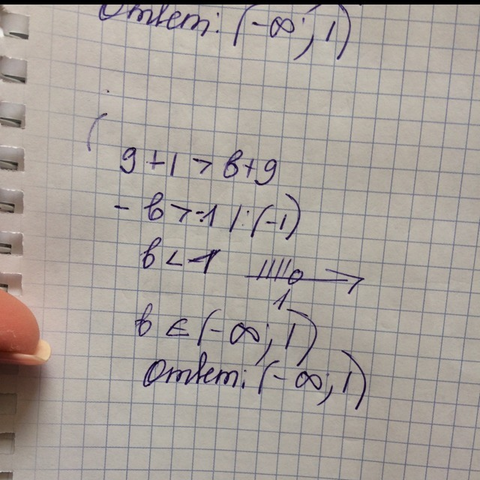 Ответ: (-∞; 1)
9+1 > b+9
-b > -1 | : (-1)
b < 1
1
b ∈ (-∞; 1)
Ответ: (-∞; 1)